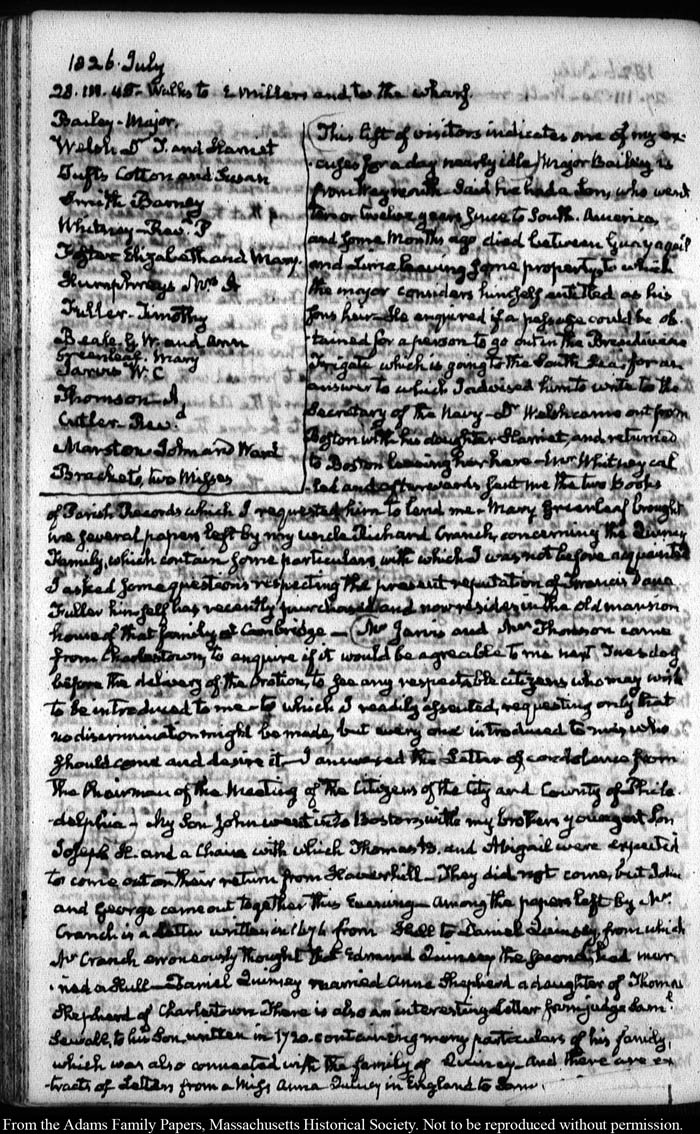 1826. July
28. III. 45. Walks to E Millers and to the wharf.
Bailey - Major.
Welsh Dr T. and Harriet
Tufts Cotton and Susan
Smith Barney
Whitney - Revd. P
Foster Elizabeth and Mary.
Humphreys Mrs A
Fuller - Timothy
Beale G. W. and Ann
Greenleaf. Mary
Jarvis W. C
Thomson A
Cutler - Revd.
Marston John and Ward
Brackets, two Misses
This list of visitors indicates one of my ex-
-cuses for a day nearly idle/Major Bailey is
from Weymouth. Said he had a Son, who went
ten or twelve years since to South. America,
and some Months ago died between Guayaquil
and Lima leaving some property, to which
the major considers himself entitled as his
Sons heir - He enquired if a passage could be ob-
-tained for a person to go out in the Brandywine
Frigate which is going to the South Sea, for an
answer to which I advised him to write to the
Secretary of the Navy - Dr Welsh came out from
Boston with his daughter Harriet, and returned
to Boston leaving her here - Mr Whitney cal-
-led and afterwards sent me the two Books
of Parish Records which I requested him to lend me - Mary Greenleaf brought
me several papers left by my uncle Richard Cranch, concerning the Quincy
Family, which contain some particulars with which I was not before acquainted
I asked some questions respecting the present reputation of Francis Dana
Fuller himself has recently purchased and now resides in the old mansion
house of that family at Cambridge - Mr Jarvis and Mr Thomson came
from Charlestown, to enquire if it would be agreable to me next Tuesday
before the delivery of the Oration, to see any respectable citizens who may wish
to be introduced to me - to which I readily assented, requesting only that
no discrimination might be made, but every one introduced to me, who
should come and desire it - I answered the Letter of condolence from
the Chairman of the Meeting of the Citizens of the City and County of Phila-
-delphia - My Son John went into Boston, with my brothers youngest Son
Joseph H. and a Chaise with which Thomas B. and Abigail were expected
to come out on their return from Haverhill - They did not come, but John
and George came out together this Evening - Among the papers left by Mr
Cranch is a Letter written in 1676 from Hull to Daniel Quinsey, from which
Mr Cranch erroneously thought that Edmund Quinsey the second, had mar-
-ried a Hull - Daniel Quinsey married Anne Shepherd a daughter of Thomas
Shepherd of Charlestown There is also an interesting Letter from judge Saml
Sewall, to his Son, written in 1720. containing many particulars of his family,
which was also connected with the family of Quincy - And there are ex-
-tracts of Letters from a Miss Anna Quincy in England to some.
From the Adams Family Papers, Massachusetts Historical Society. Not to be reproduced without permission.